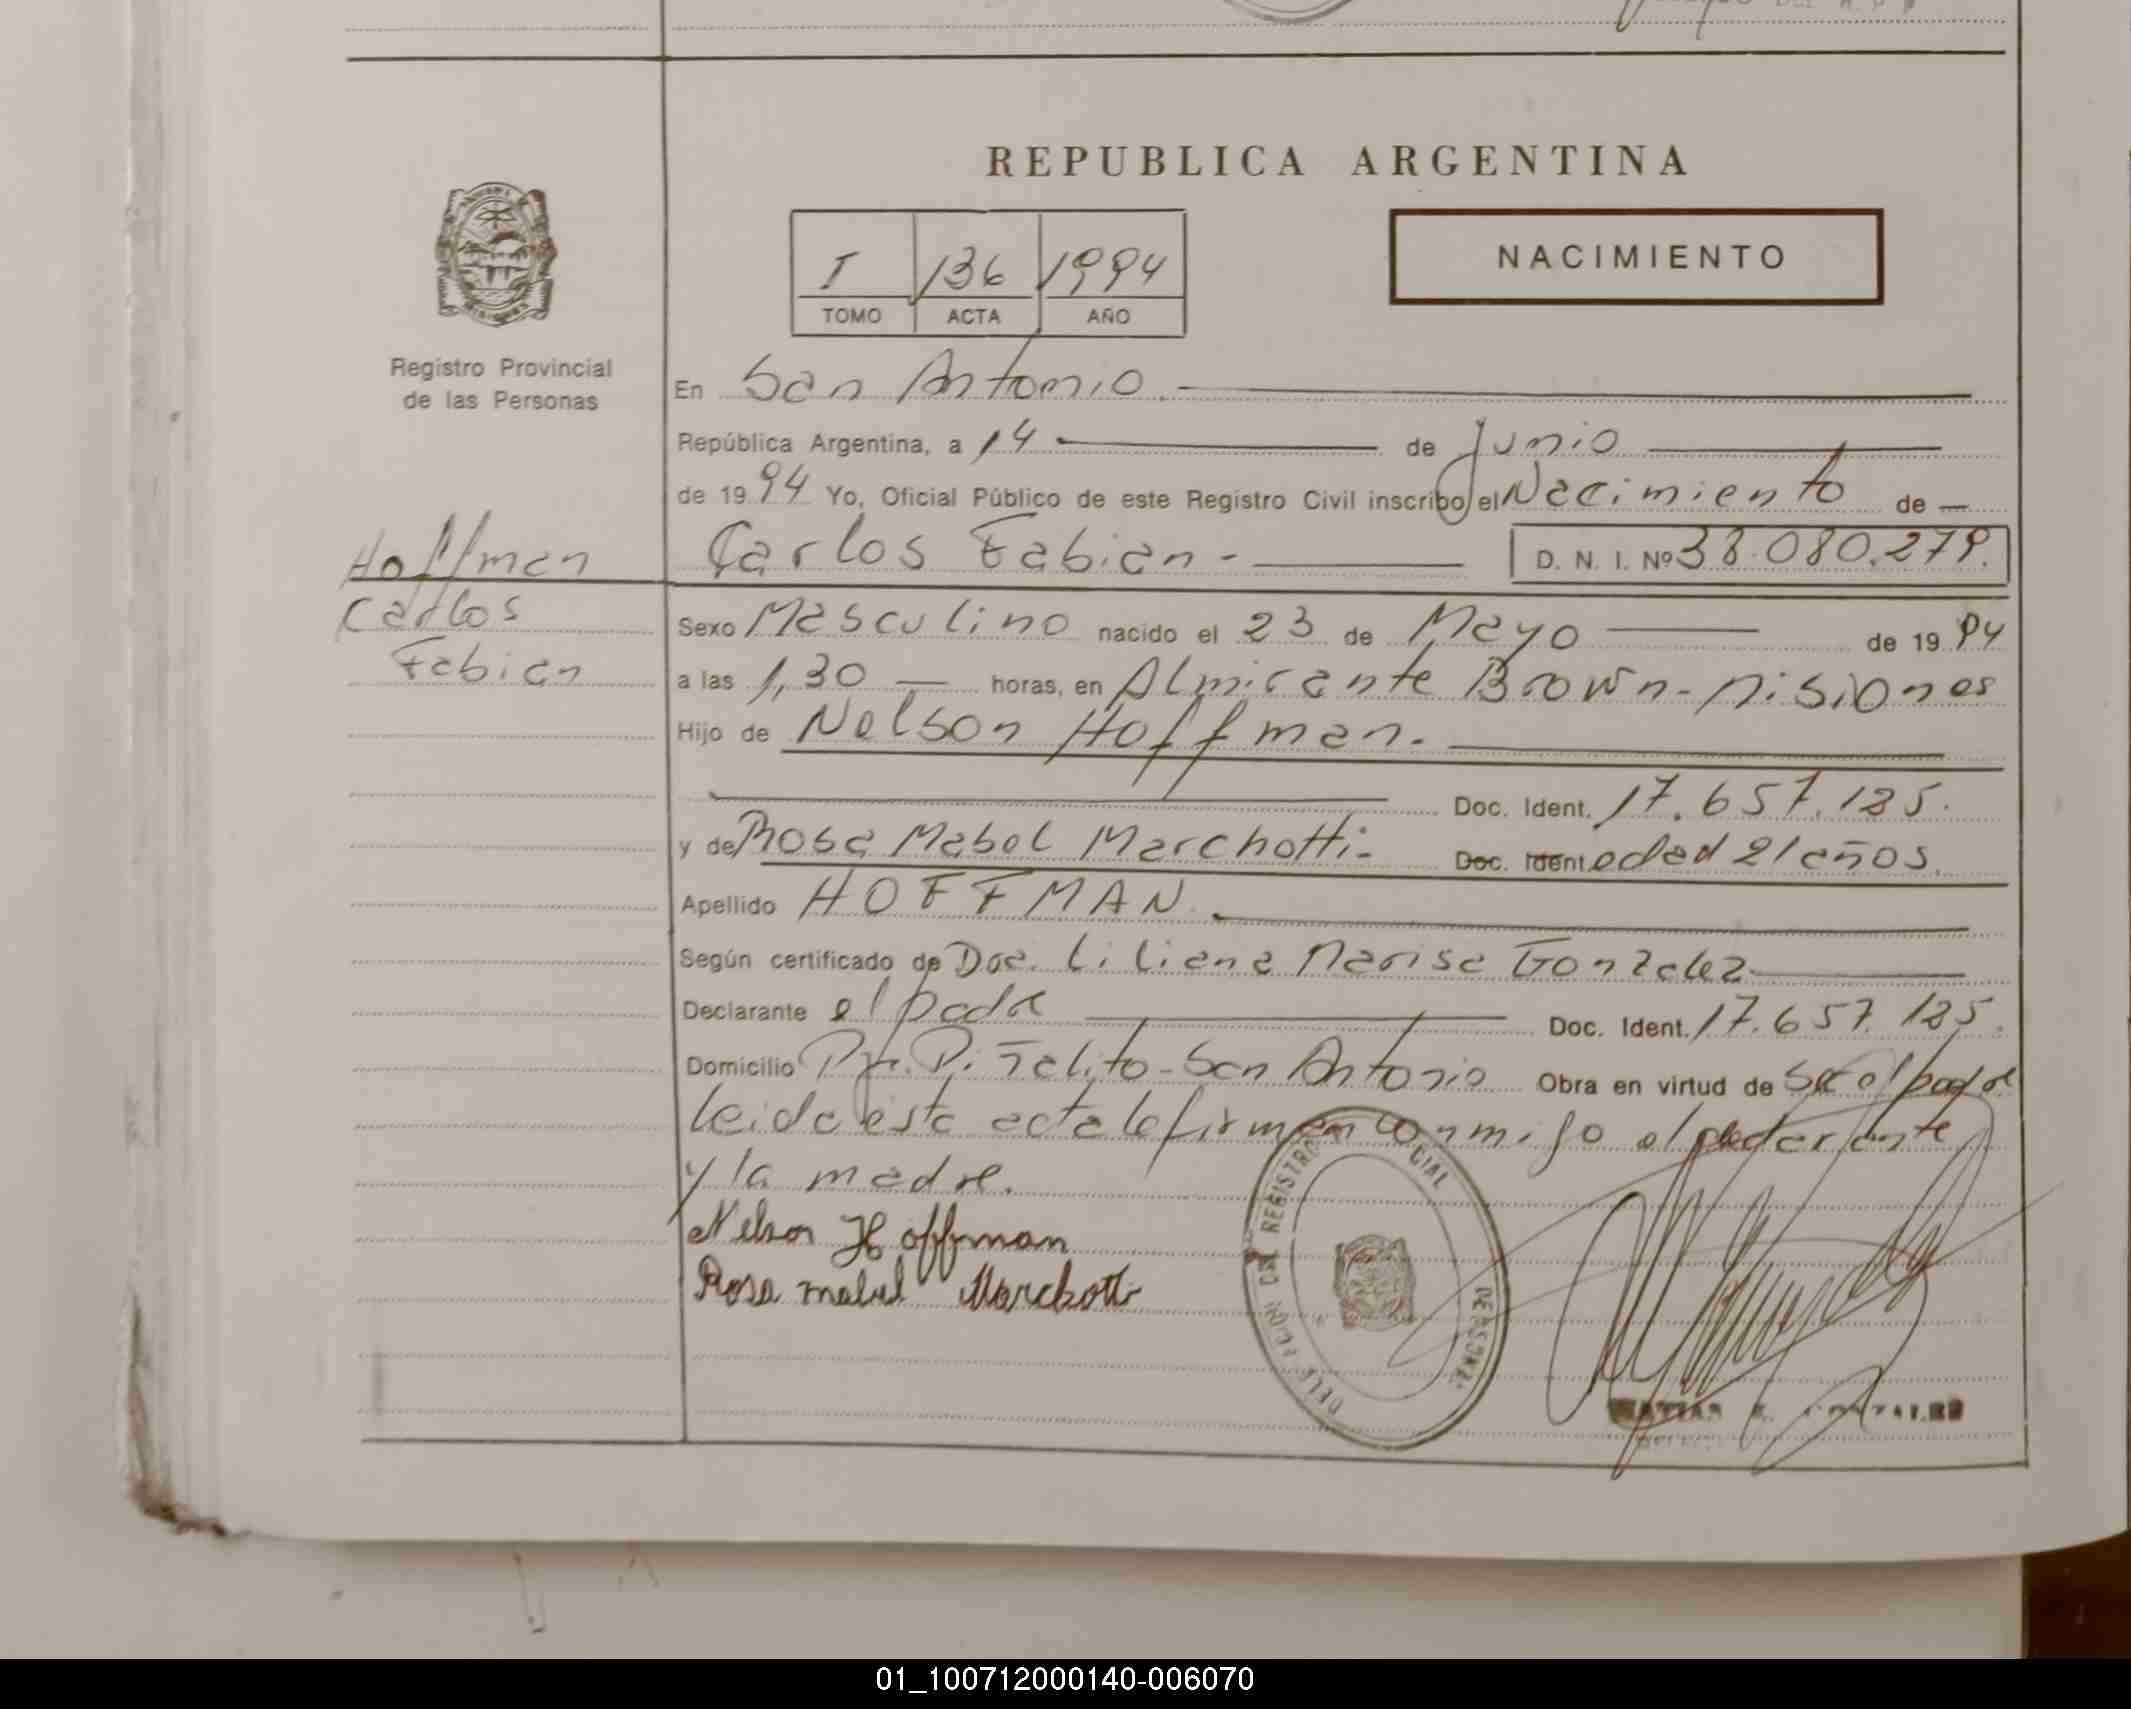 REPUBLICA ARGENTINA
I 136 1994
TOMO ACTA AÑO
NACIMIENTO
Registro Provincial
de las Personas
Hoffman
Carlos
Fabian
En San Antonio.
República Argentina, a 14 de Junio
de 1994 Yo, Oficial Público de este Registro Civil inscribo el Nacimiento de
Carlos Fabian - D. N. I. Nº 38.080.279.
Sexo Masculino nacido el 23 de Mayo de 1994
a las 1,30 horas, en Almirante Brown - Misiones
Hijo de Nelson Hoffman.
Doc. Ident. 17.657.185.
y de Rosa Mabel Marchotti - Doc. Ident edad 21 años.
Apellido HOFFMAN
Según certificado de Doc. Liliana Marisa Gonzalez
Declarante el padre Doc. Ident. 17.657.185.
Domicilio Piñalito - San Antonio Obra en virtud de ser el padre
leida esta acta la firman conmigo el
y la madre.
Nelson Hoffman
Rosa mabel Marchotti
REGISTRO
01_100712000140-006070